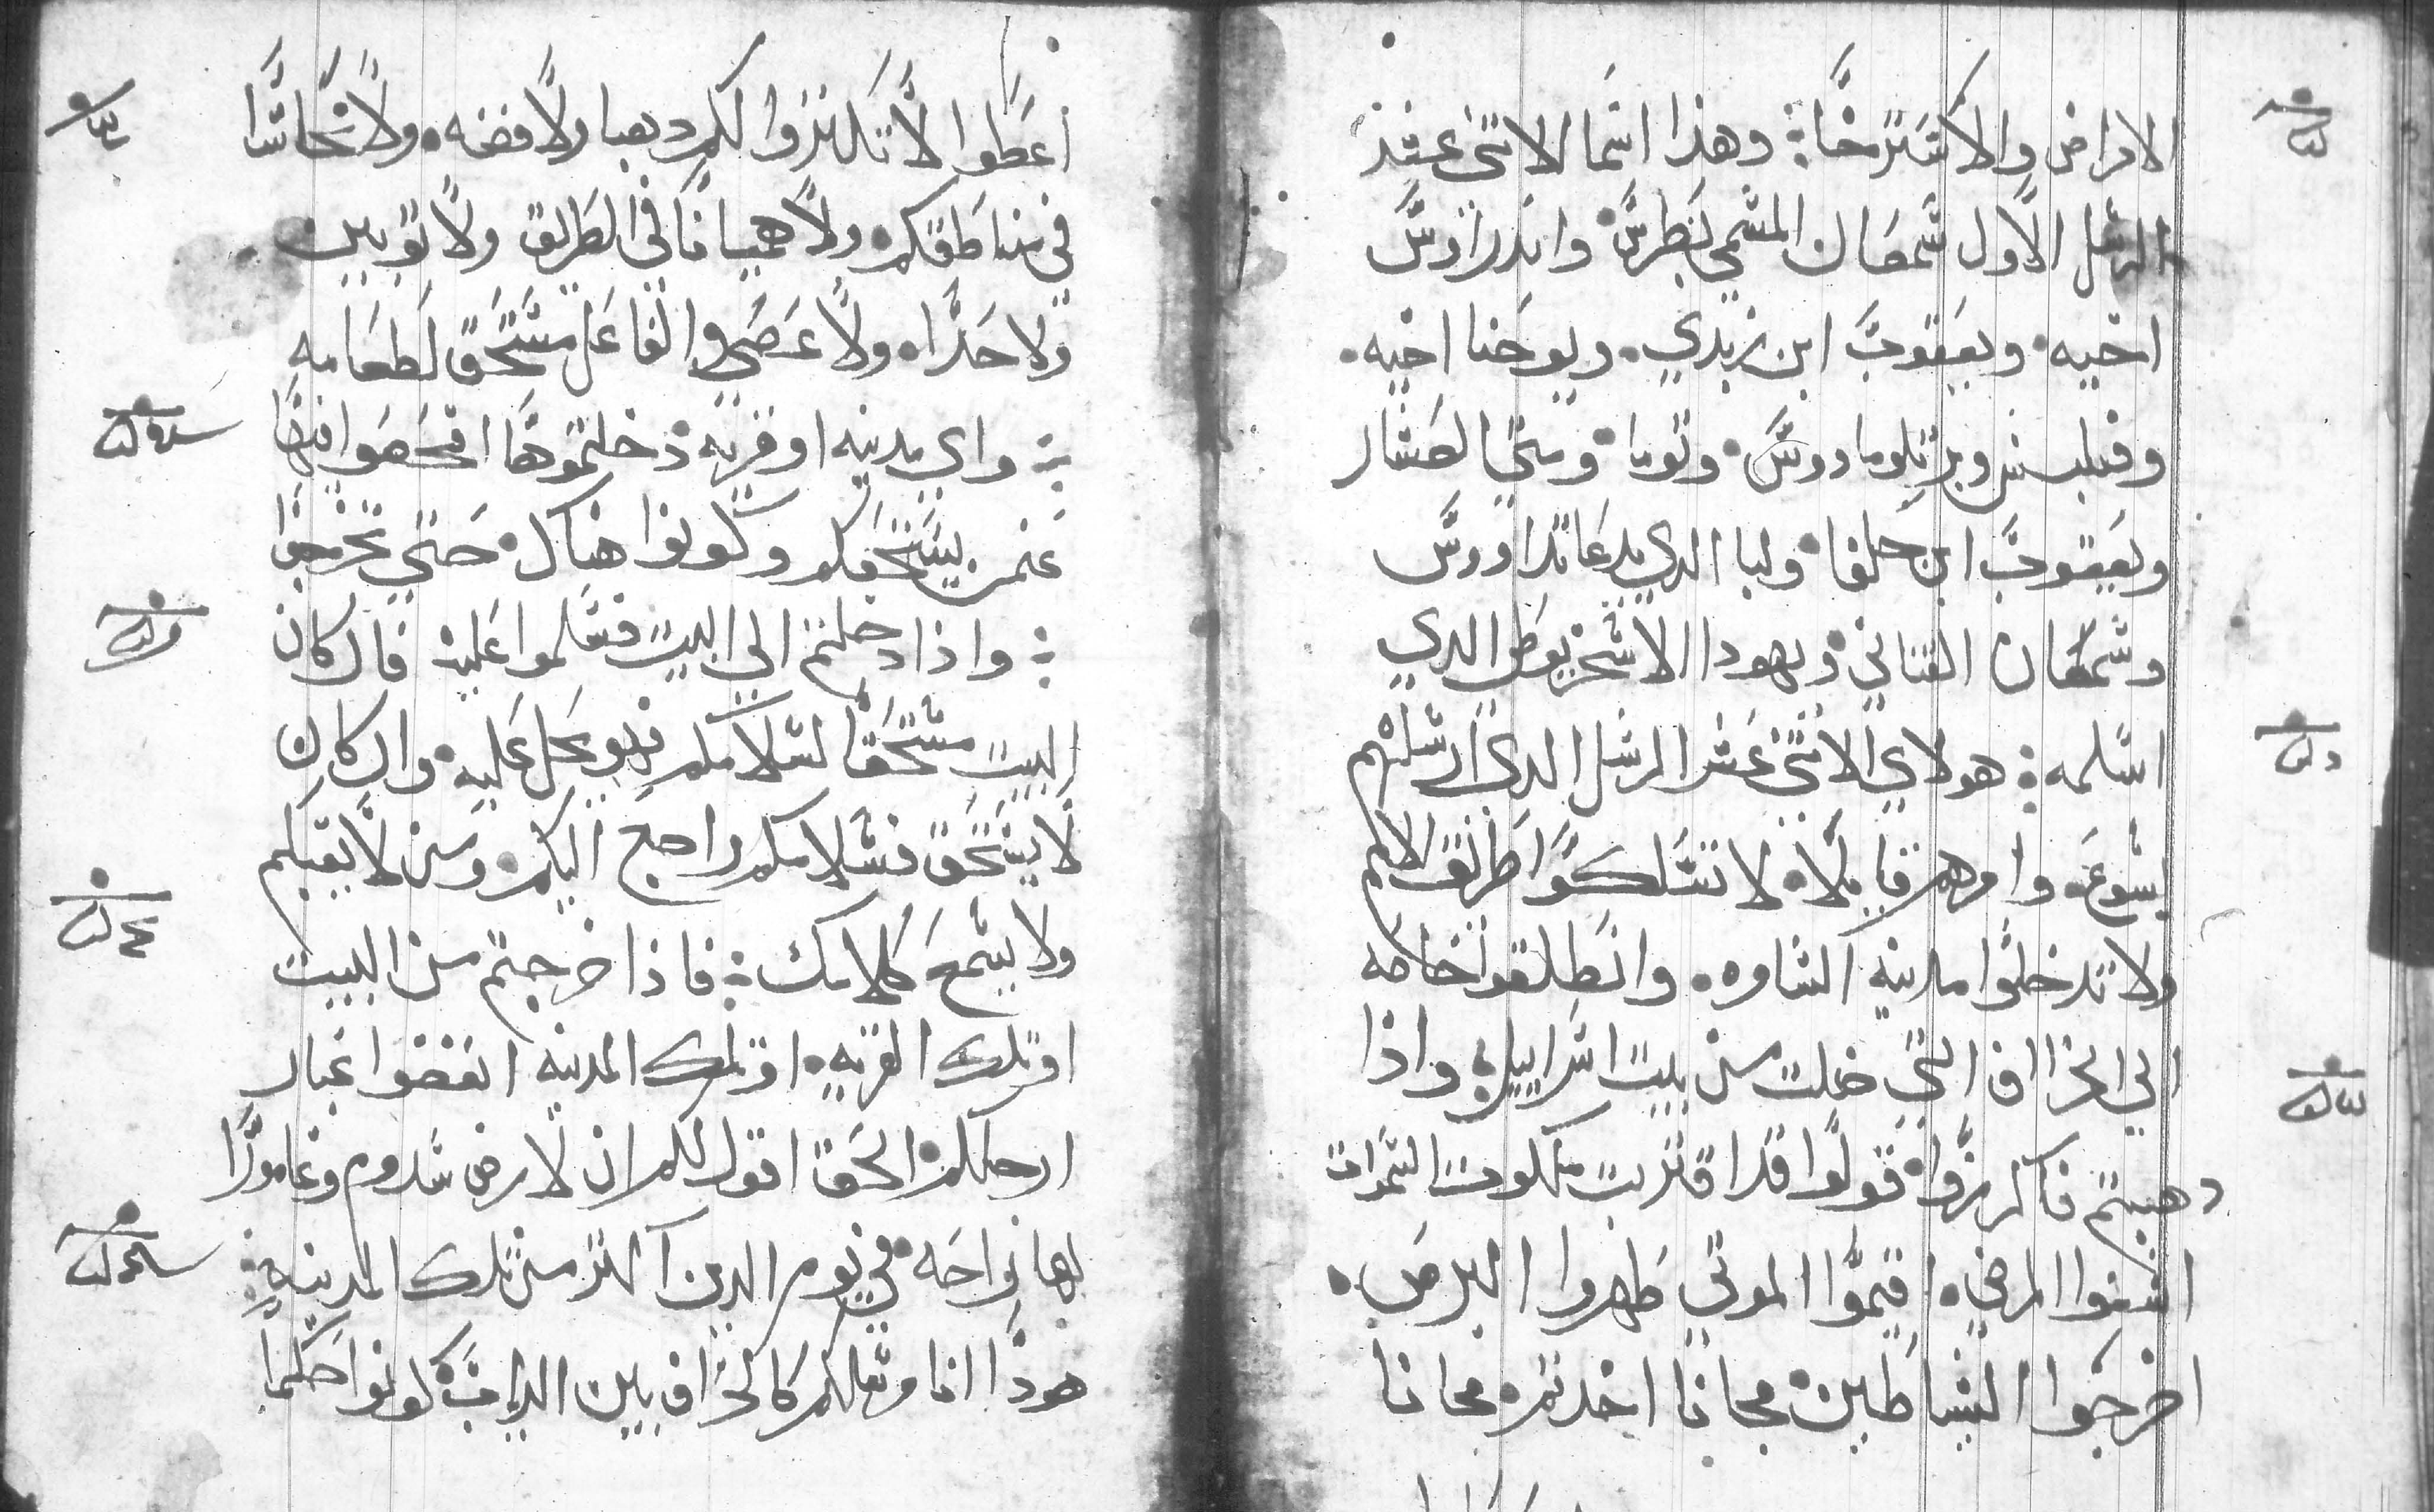 الامراض والاكسترخا؛ وهذا اسما الاثني عشر
الرسل الاول شمعان المسمي بطرس وانداراوس
اخيه ويعقوب ابن زبدي. ويوحنا اخيه.
وفيلبس وبرتلوماووس وتوما ومتي العشار
ويعقوب ابن حلفا ولبا الدي يدعا تداووس
وشمعان القناني ويهودا الاسخريوطي الدي
اسلمه؛ هولاي الاثني عشر الرسل الدي ارسلهم
يسوع. وامرهم قايلا. لا تسلكوا طريق الامم
ولا تدخلوا مدينه السامره. وانطلقوا خاصه
الي الخراف التي ضلت من بيت اسراييل؛ واذا
دهبتم فاكرزوا قولوا قد اقتربت ملكوت السموات
اشفوا المرضي. اقيموا الموتي طهروا البرص.
اخرجوا الشياطين مجانا اخدتم مجانا
اعطوا لا تكنزوا لكم دهبا ولا فضه. ولا نحاسا
في مناطقكم ولا هميانا في الطريق ولا توبين
ولا حدا. ولا عصي والفاعل مستحق لطعامه
؛ واي مدينه او قريه دخلتموها افحصوا فيها
عنمن يستحقكم وكونوا هناك حتي تخرجوا
؛ واذا دخلتم الي البيت فسلموا عليه فان كان
البيت مستحقا لسلامكم فهو يحل عليه وان كان
لا يستحق فسلامكم راجع اليكم. ومن لا يقبلكم
ولا يسمع كلامك؛ فاذا خرجتم من البيت
او تلك القريه. او تلك المدينه انفضوا غبار
ارجلكم الحق اقول لكم ان لارض سدوم وغامورا
لها نواحه في يوم الدين اكتر من تلك المدينه؛
هودا انا مرسلكم كالخراف بين الدياب كونوا حكما